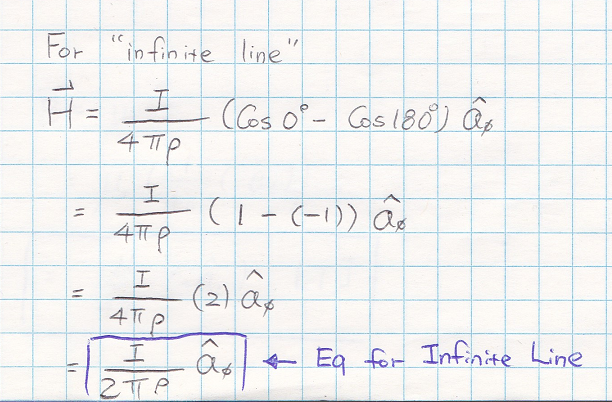 For "infinite line"
H⃗ = I / 4πρ (Cos 0° - Cos 180°) â_ϕ
= I / 4πρ (1 - (-1)) â_ϕ
= I / 4πρ (2) â_ϕ
= I / 2πρ â_ϕ ← Eq for Infinite Line